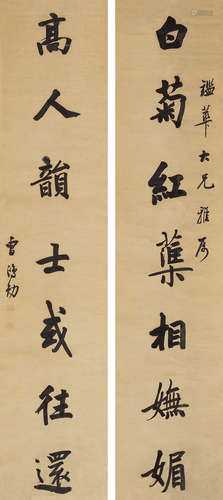 白菊紅蕖相嫵媚
華大兄雅屬
高人韻士或往還
曹鴻勛